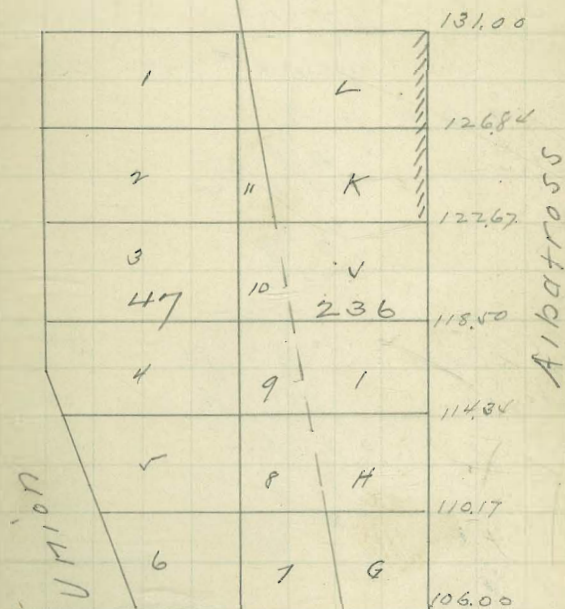 131.00
1 L
126.84
2 11 K
122.67
3 J
47 10 236
118.50
4 9 1
114.34
5 8 H
110.17
6 7 G
106.00
Albatross
Union